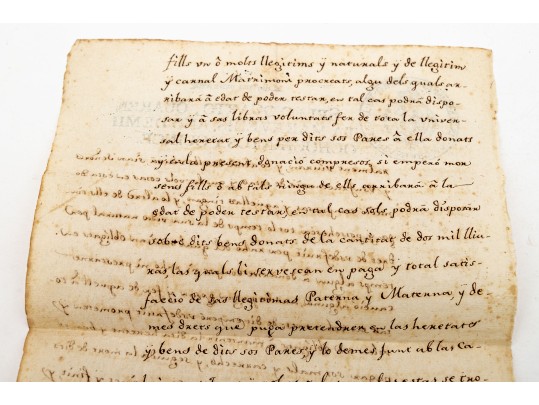 fills vn ò molts llegitims ÿ naturals ÿ de llegitim
ÿ carnal Matrimoni procreats, algu dels quals ar-
ribarà à edat de poder testar, en tal cas podrà dispo-
sar ÿ à sas libras voluntats fer de tota la vniver-
sal heretat ÿ bens per dits sos Pares à ella donats
ÿ en la present donació compresos, si emperò mor
sens fills ò ab tals ningu de ells arribarà à la
edat de poder testar, en tal cas sols podrà disponir
sobre dits bens donats de la cantitat de dos mil lliu-
ras, las quals li servescan en paga y total satis-
facció de sas llegitimas Paterna, y Materna, y de-
mes drets que puga pretendrer en las heretats
ÿ bens de dits sos Pares, y lo demes junt ab las ca-